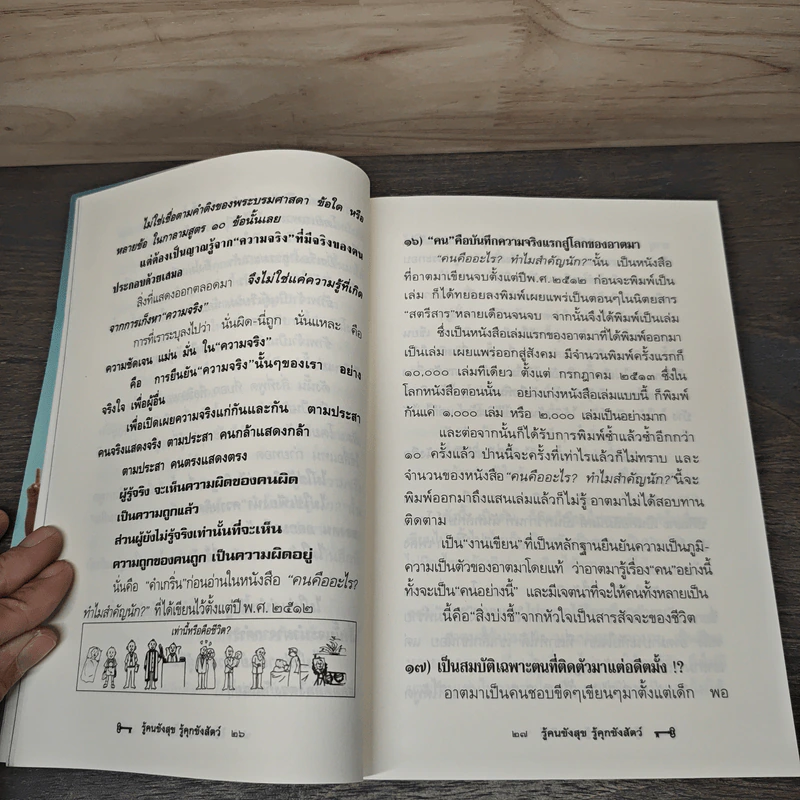 ไม่ใช่เชื่อตามคำตึงของพระบรมศาสดา ข้อใด หรือ
หลายข้อ ในกาลามสูตร ๑๐ ข้อนั้นเลย
แต่ต้องเป็นญาณรู้จาก“ความจริง”ที่มีจริงของตน
ประกอบด้วยเสมอ
สิ่งที่แสดงออกตลอดมา จึงไม่ใช่แค่ความรู้ที่เกิด
จากการเก็งหา“ความจริง”
การที่เราระบุลงไปว่า นั่นผิด-นี่ถูก นั่นแหละ คือ
ความชัดเจน แม่น มั่น ใน“ความจริง”
คือ การยืนยัน“ความจริง”นั้นๆของเรา อย่าง
จริงใจ เพื่อผู้อื่น
เพื่อเปิดเผยความจริงแก่กันและกัน ตามประสา
คนจริงแสดงจริง ตามประสา คนกล้าแสดงกล้า
ตามประสา คนตรงแสดงตรง
ผู้รู้จริง จะเห็นความผิดของคนผิด
เป็นความถูกแล้ว
ส่วนผู้ยังไม่รู้จริงเท่านั้นที่จะเห็น
ความถูกของคนถูก เป็นความผิดอยู่
นั่นคือ “คำเกริ่น”ก่อนอ่านในหนังสือ “คนคืออะไร?
ทำไมสำคัญนัก?” ที่ได้เขียนไว้ตั้งแต่ปี พ.ศ. ๒๕๑๒
เท่านี้หรือคือชีวิต?
รู้คนขังสุข รู้คุกขังสัตว์ ๒๖
๑๖) “คน”คือบันทึกความจริงแรกสู่โลกของอาตมา
“คนคืออะไร? ทำไมสำคัญนัก?”นั้น เป็นหนังสือ
ที่อาตมาเขียนจบตั้งแต่ปีพ.ศ.๒๕๑๒ ก่อนจะพิมพ์เป็น
เล่ม ก็ได้ทยอยลงพิมพ์เผยแพร่เป็นตอนๆในนิตยสาร
“สตรีสาร”หลายเดือนจนจบ จากนั้นจึงได้พิมพ์เป็นเล่ม
ซึ่งเป็นหนังสือเล่มแรกของอาตมาที่ได้พิมพ์ออกมา
เป็นเล่ม เผยแพร่ออกสู่สังคม มีจำนวนพิมพ์ครั้งแรกก็
๑๐,๐๐๐ เล่มทีเดียว ตั้งแต่ กรกฎาคม ๒๕๑๓ ซึ่งใน
โลกหนังสือตอนนั้น อย่างเก่งหนังสือเล่มแบบนี้ ก็พิมพ์
กันแค่ ๑,๐๐๐ เล่ม หรือ ๒,๐๐๐ เล่มเป็นอย่างมาก
และต่อจากนั้นก็ได้รับการพิมพ์ซ้ำแล้วซ้ำอีกกว่า
๑๐ ครั้งแล้ว ป่านนี้จะครั้งที่เท่าไรแล้วก็ไม่ทราบ และ
จำนวนของหนังสือ “คนคืออะไร? ทำไมสำคัญนัก?”นี้จะ
พิมพ์ออกมาถึงแสนเล่มแล้วก็ไม่รู้ อาตมาไม่ได้สอบทาน
ติดตาม
เป็น“งานเขียน”ที่เป็นหลักฐานยืนยันความเป็นภูมิ-
ความเป็นตัวของอาตมาโดยแท้ ว่าอาตมารู้เรื่อง“คน”อย่างนี้
ทั้งจะเป็น“คนอย่างนี้” และมีเจตนาที่จะให้คนทั้งหลายเป็น
นี้คือ“สิ่งบ่งชี้”จากหัวใจเป็นสารสัจจะของชีวิต
๑๗) เป็นสมบัติเฉพาะตนที่ติดตัวมาแต่อดีตมั้ง !?
อาตมาเป็นคนชอบขีดๆเขียนๆมาตั้งแต่เด็ก พอ
๒๗ รู้คนขังสุข รู้คุกขังสัตว์